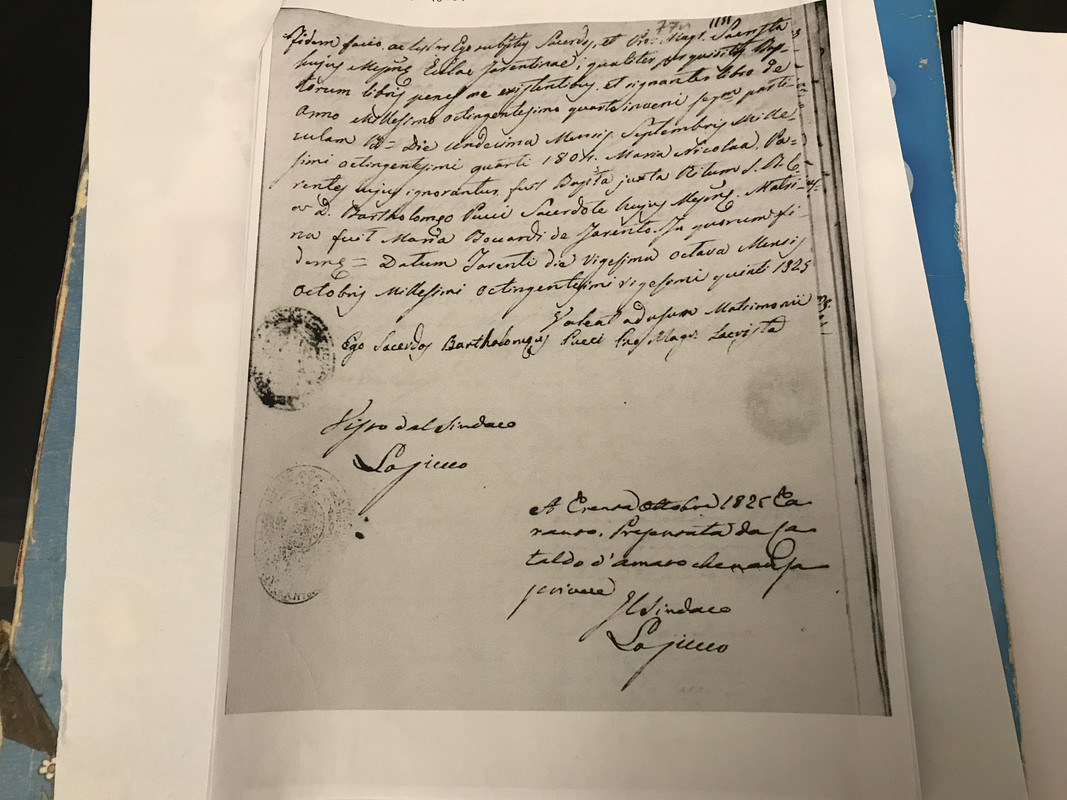 77
Fidem facio ac testor Ego subtus Sacerdos, et Pro: Mag. Sacrista
hujus Metrop: Eccliae Tarentinae, qualiter perquisitis Bap-
torum libris penes me existentibus, et signanter libro de
Anno Millesimo octingentesimo quarto inveni seqm parti-
culam Vz = Die undecima Mensis Septembris Mille-
simi octingentesimi quarti 1804. Maria Nicolaa, Pa-
rentes cujus ignorantur, fuit Bapta juxta Ritum S. R. E.
a D. Bartholomeo Pucci Sacerdote hujus Metrop: Matri-
na fuit Maria Boccardi de Tarento. In quorum fi-
dem = Datum Tarenti die vigesima octava Mensis
Octobris Millesimi octingentesimi vigesimi quinti 1825
Valeat ad usum Matrimonii
Ego Sacerdos Bartholomeus Pucci Pro Mag. Sacrista
Visto dal Sindaco
Lo Jucco
A Trenta Ottobre 1825 Ta-
ranto. Presentata da Ca-
taldo d'Amaro che non sa
scrivere
Il Sindaco
Lo Jucco